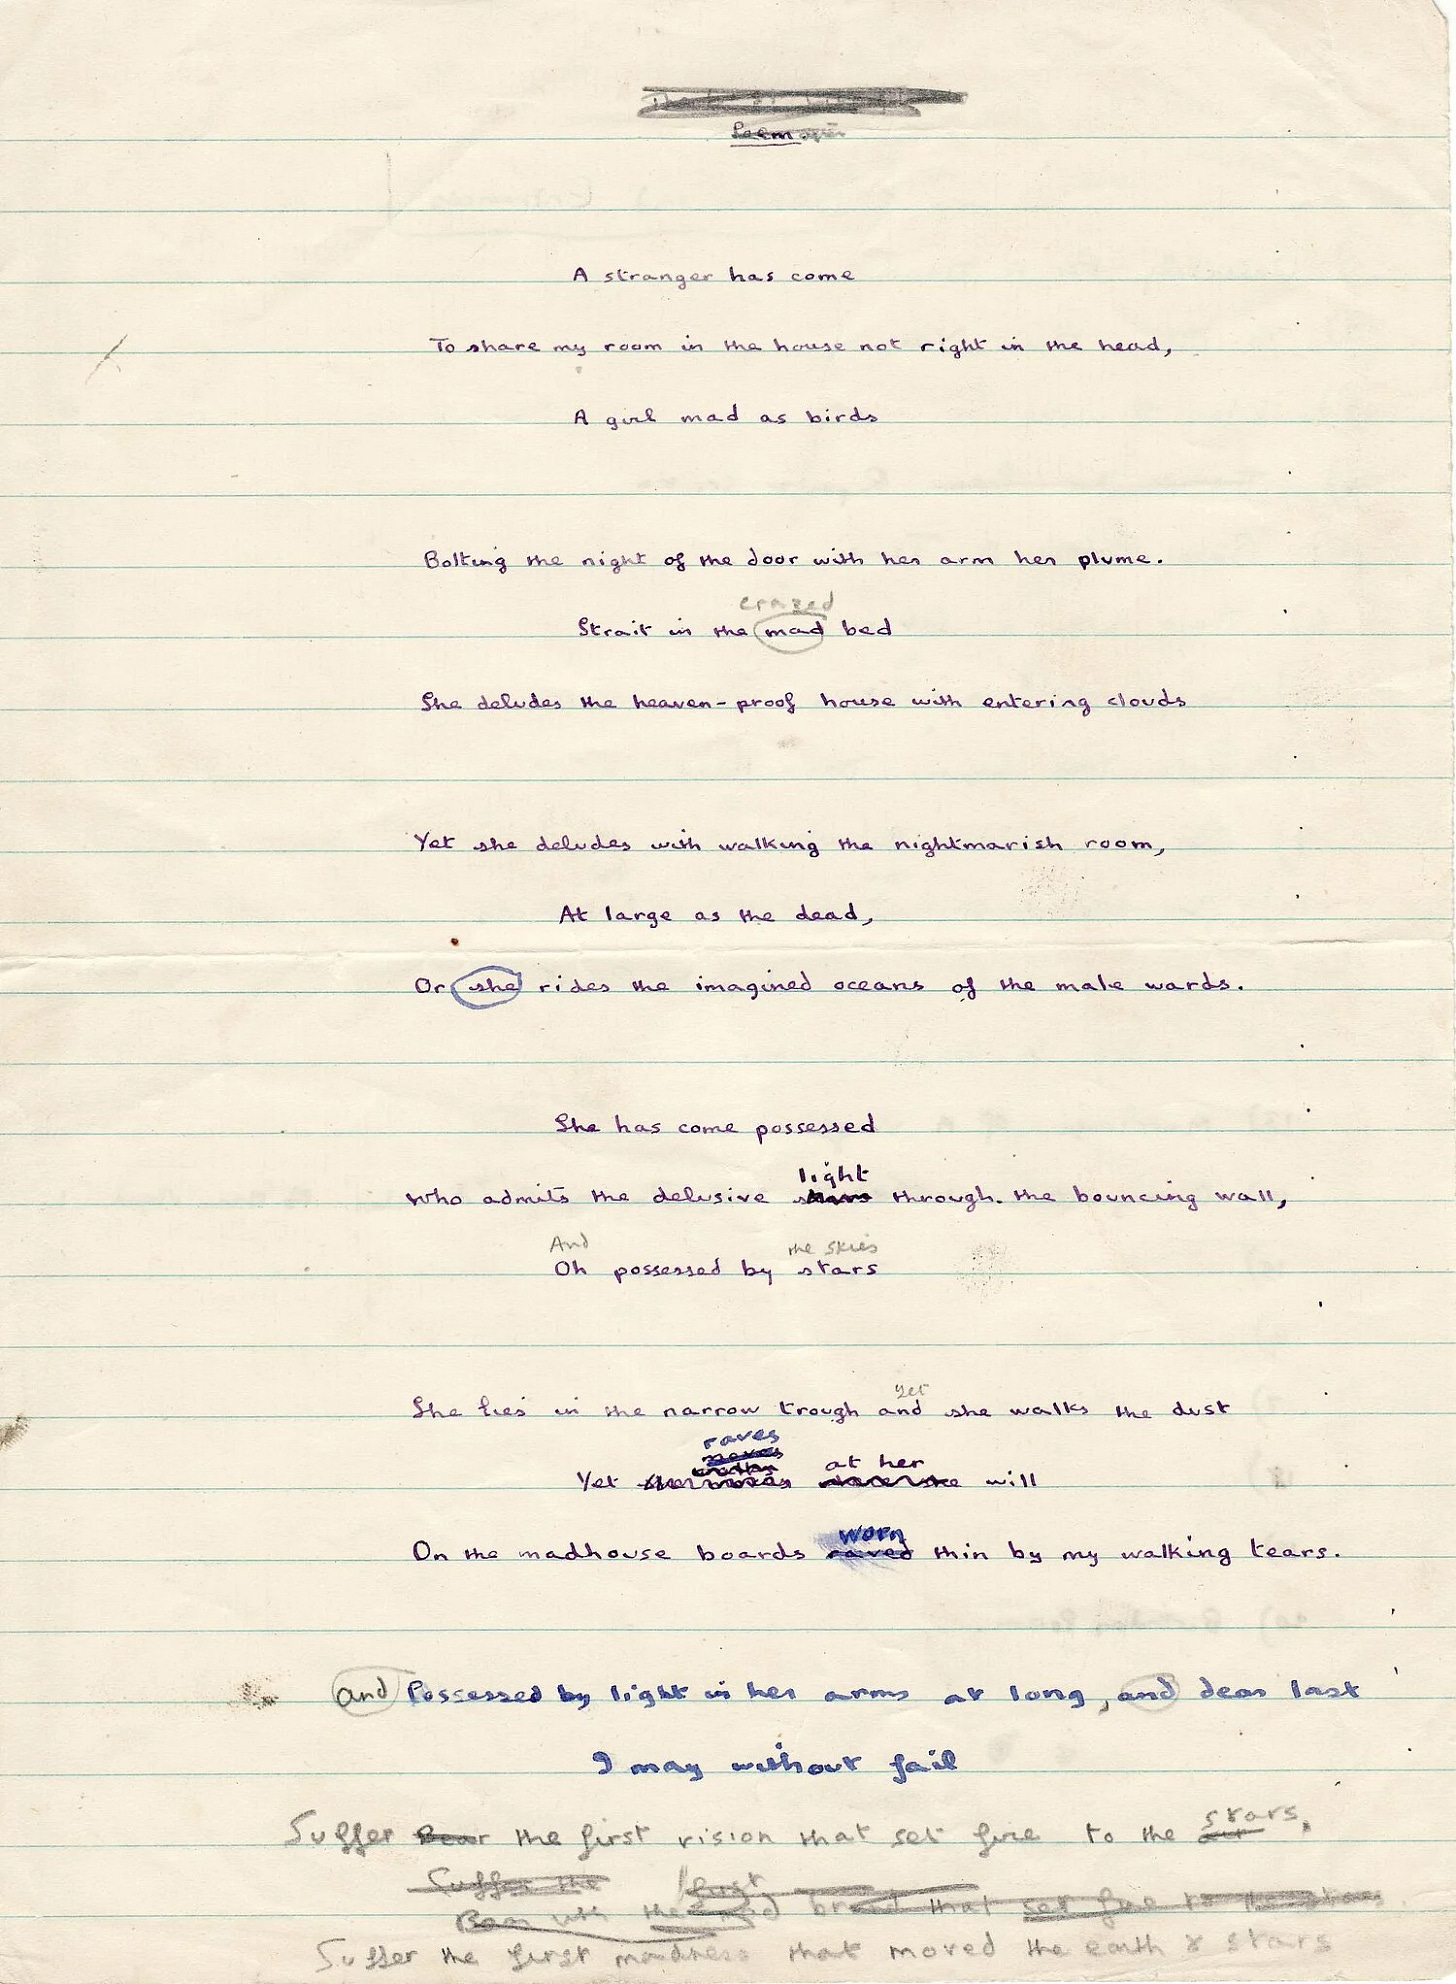 Poem
A stranger has come
To share my room in the house not right in the head,
A girl mad as birds
Bolting the night of the door with her arm her plume.
crazed
Strait in the mad bed
She deludes the heaven-proof house with entering clouds
Yet she deludes with walking the nightmarish room,
At large as the dead,
Or she rides the imagined oceans of the male wards.
She has come possessed
light
Who admits the delusive stars through the bouncing wall,
And the skies
Oh possessed by stars
yet
She lies in the narrow trough and she walks the dust
raves
at her
Yet will
worn
On the madhouse boards raved thin by my walking tears.
and Possessed by light in her arms at long, and dear last
I may without fail
stars.
Suffer Bear the first vision that set fire to the
Suffer the first
Bear with the mad brand that set fire to the stars
Suffer the first madness that moved the earth & stars